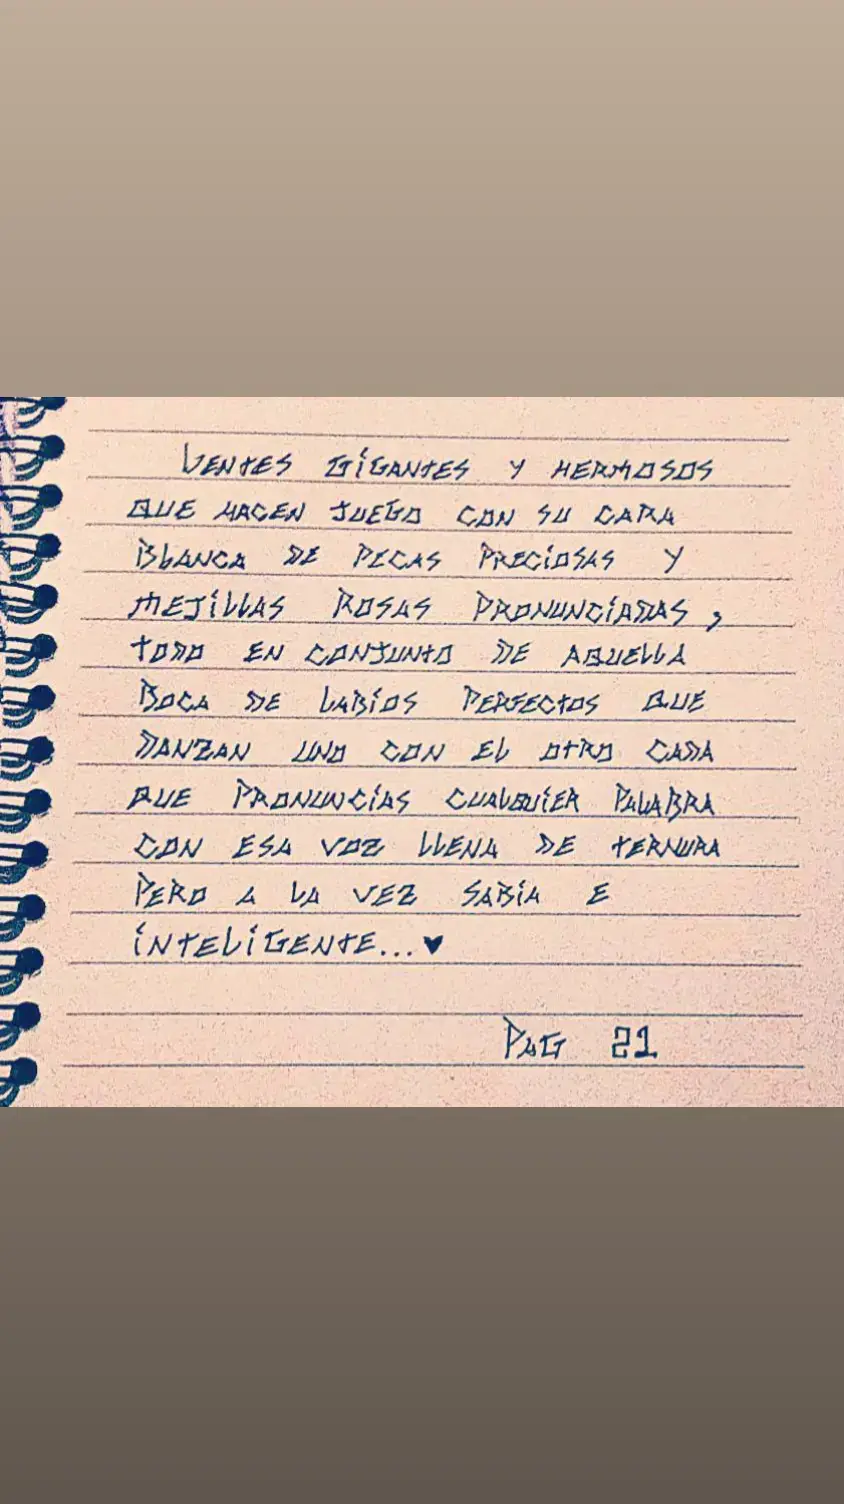 LENTES GIGANTES Y HERMOSOS
QUE HACEN JUEGO CON SU CARA
BLANCA DE PECAS PRECIOSAS Y
MEJILLAS ROSAS PRONUNCIADAS,
TODO EN CONJUNTO DE AQUELLA
BOCA DE LABIOS PERFECTOS QUE
DANZAN UNO CON EL OTRO CADA
QUE PRONUNCIAS CUALQUIER PALABRA
CON ESA VOZ LLENA DE TERNURA
PERO A LA VEZ SABIA E
INTELIGENTE...♥
PAG 21